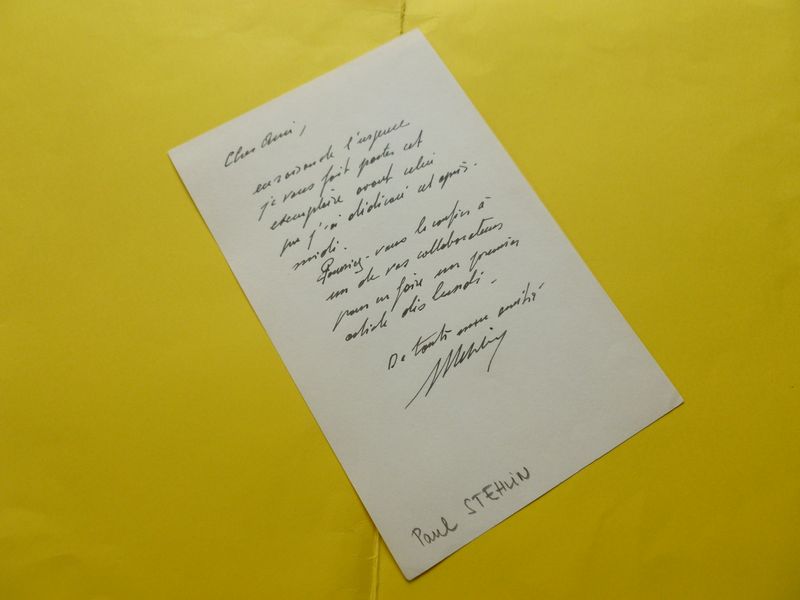 Cher Ami,
en raison de l'urgence
je vous fait porter cet
exemplaire avant celui
que j'ai dédicacé cet après-
midi.
Pourriez-vous le confier à
un de vos collaborateurs
pour en faire un premier
article dès lundi -
De toute mon amitié -
Stehlin
Paul STEHLIN